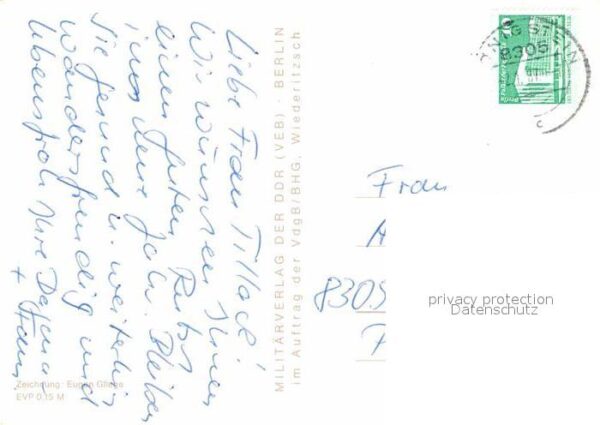 Liebe Frau Tillack!
Wir wünschen Ihnen
einen guten Rutsch
ins neue Jahr. Bleiben
Sie gesund u. weiterhin
wanderfreudig und
lebensfroh Ihre
+ Fam.
MILITÄRVERLAG DER DDR (VEB) · BERLIN
im Auftrag der VdgB/BHG, Wiederitzsch
Zeichnung: Eugen Gliege
EVP 0,15 M
8305
Frau
A
8305
privacy protection
Datenschutz